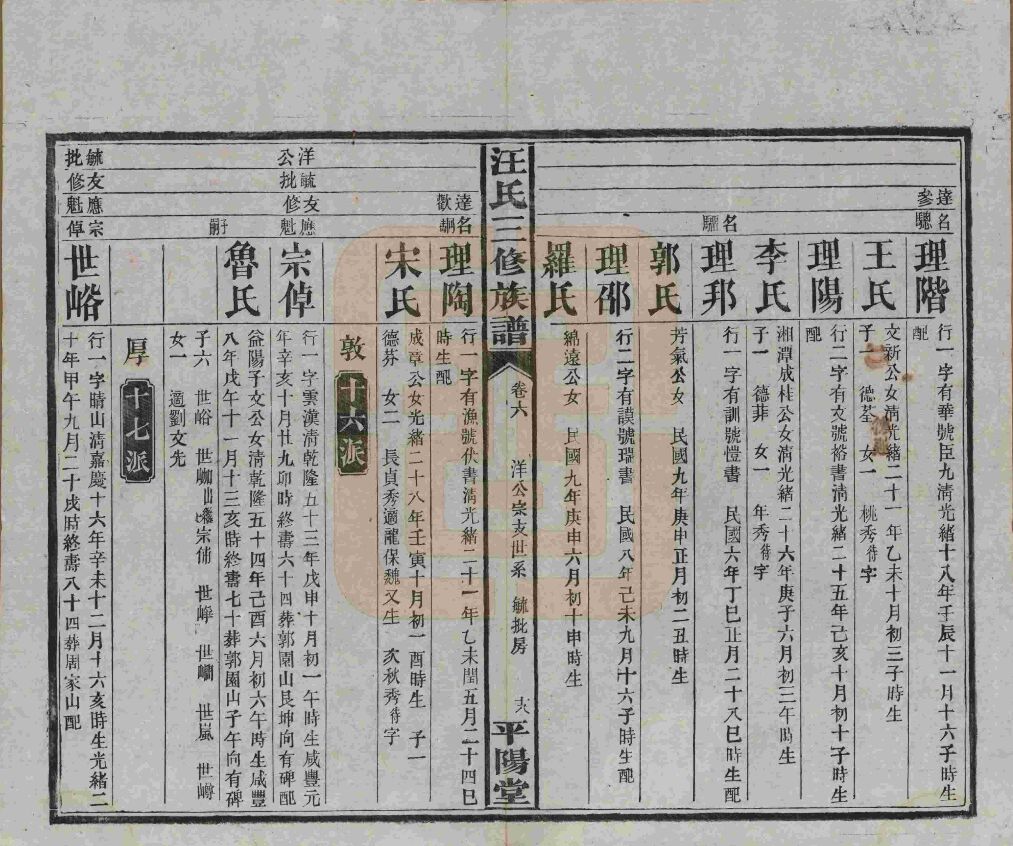 達參
名驄
理階
行一字有華號臣九淸光緒十八年壬辰十一月十六子時生
配
王氏
文新公女淸光緒二十一年乙未十月初三子時生
子一 德荃 女一 桃秀待字
理陽
行二字有文號裕書淸光緒二十五年己亥十月初十子時生
配
李氏
湘潭成桂公女淸光緒二十六年庚子六月初三午時生
子一 德菲 女一 年秀待字
名驑
理邦
行一字有訓號愷書 民國六年丁巳正月二十八巳時生配
郭氏
芳氣公女 民國九年庚申正月初二丑時生
理邵
行二字有謨號瑞書 民國八年己未九月十六子時生配
羅氏
綿遠公女 民國九年庚申六月初十申時生
汪氏三修族譜
卷六
洋公宗支世系 毓批房
平陽堂
達歡
名
理陶
行一字有漁號伏書淸光緒二十一年乙未閏五月二十四巳
時生配
宋氏
成章公女光緒二十八年壬寅十月初一酉時生 子一
德芬 女二 長貞秀適龍保魏又生 次秋秀待字
敦 十六派
洋公
毓批
友修
應魁
宗倬
行一字雲漢淸乾隆五十三年戊申十月初一午時生咸豐元
年辛亥十月廿九卯時終壽六十四葬郭園山艮坤向有碑配
子嗣
魯氏
益陽子文公女淸乾隆五十四年己酉六月初六午時生咸豐
八年戊午十一月十三亥時終壽七十葬郭園山子午向有碑
子六 世峪 世㘭出繼宗俌 世崢 世㠝 世嵐 世嶟
女一 適劉文先
厚 十七派
毓批
友修
應魁
宗倬
世峪
行一字晴山淸嘉慶十六年辛未十二月十六亥時生光緒二
十年甲午九月二十戌時終壽八十四葬周家山配